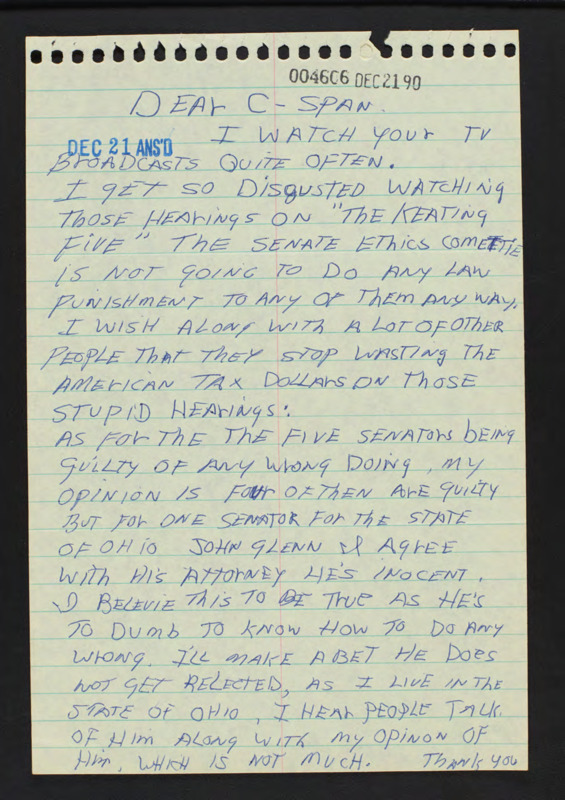 004606 DEC 21 90
DEAr C-SPAN.
DEC 21 ANS'D
I WATCH YOUr TV
BrOADCASTS QUITE OFTEN.
I GET SO DISGUSTED WATCHING
THOSE HEArINGS ON "THE KEATING
FIVE" THE SENATE ETHICS COMETTIE
IS NOT GOING TO DO ANY LAW
PUNISHMENT TO ANY OF THEM ANY WAY.
I WISH ALONG WITH A LOT OF OTHER
PEOPLE THAT THEY STOP WASTING THE
AMErICAN TAX DOLLArS ON THOSE
STUPID HEArINGS.
AS FOr THE THE FIVE SENATOrS bEING
GUILTY OF ANY WrONG DOING, MY
OPINION IS FOUr OF THEN ArE GUILTY
BUT FOr ONE SENATOR FOr THE STATE
OF OHIO JOHN GLENN I AGrEE
WITH HIS ATTOrNEY HE'S INOCENT.
I BELEVIE THIS TO BE TrUE AS HE'S
TO DUMb TO KNOW HOW TO DO ANY
WrONG. I'LL MAKE A BET HE DOES
NOT GET RELECTED, AS I LIVE IN THE
STATE OF OHIO, I HEAr PEOPLE TALK
OF HIM ALONG WITH MY OPINON OF
HIM, WHICH IS NOT MUCH. THANK YOU